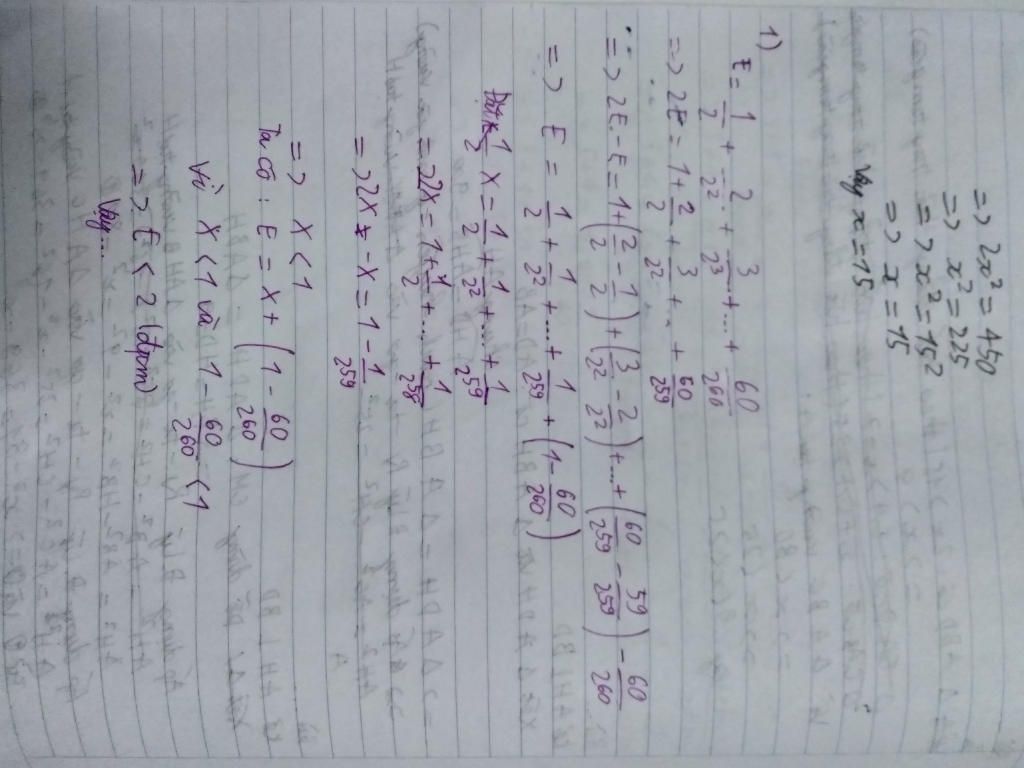 => 2x² = 450
=> x² = 225
=> x² = 15²
=> x = 15
Vậy x = 15
1)
E = 1/2 + 2/2² + 3/2³ + ... + 60/2⁶⁰
=> 2E = 1 + 2/2 + 3/2² + ... + 60/2⁵⁹
=> 2E - E = 1 + (2/2 - 1/2) + (3/2² - 2/2²) + ... + (60/2⁵⁹ - 59/2⁵⁹) - 60/2⁶⁰
=> E = 1/2 + 1/2² + ... + 1/2⁵⁹ + (1 - 60/2⁶⁰)
Đặt X = 1/2 + 1/2² + ... + 1/2⁵⁹
=> 2X = 1 + 1/2 + ... + 1/2⁵⁸
=> 2X - X = 1 - 1/2⁵⁹
=> X < 1
Ta có : E = X + (1 - 60/2⁶⁰)
Vì X < 1 và 1 - 60/2⁶⁰ < 1
=> E < 2 (đpcm)
Vậy...